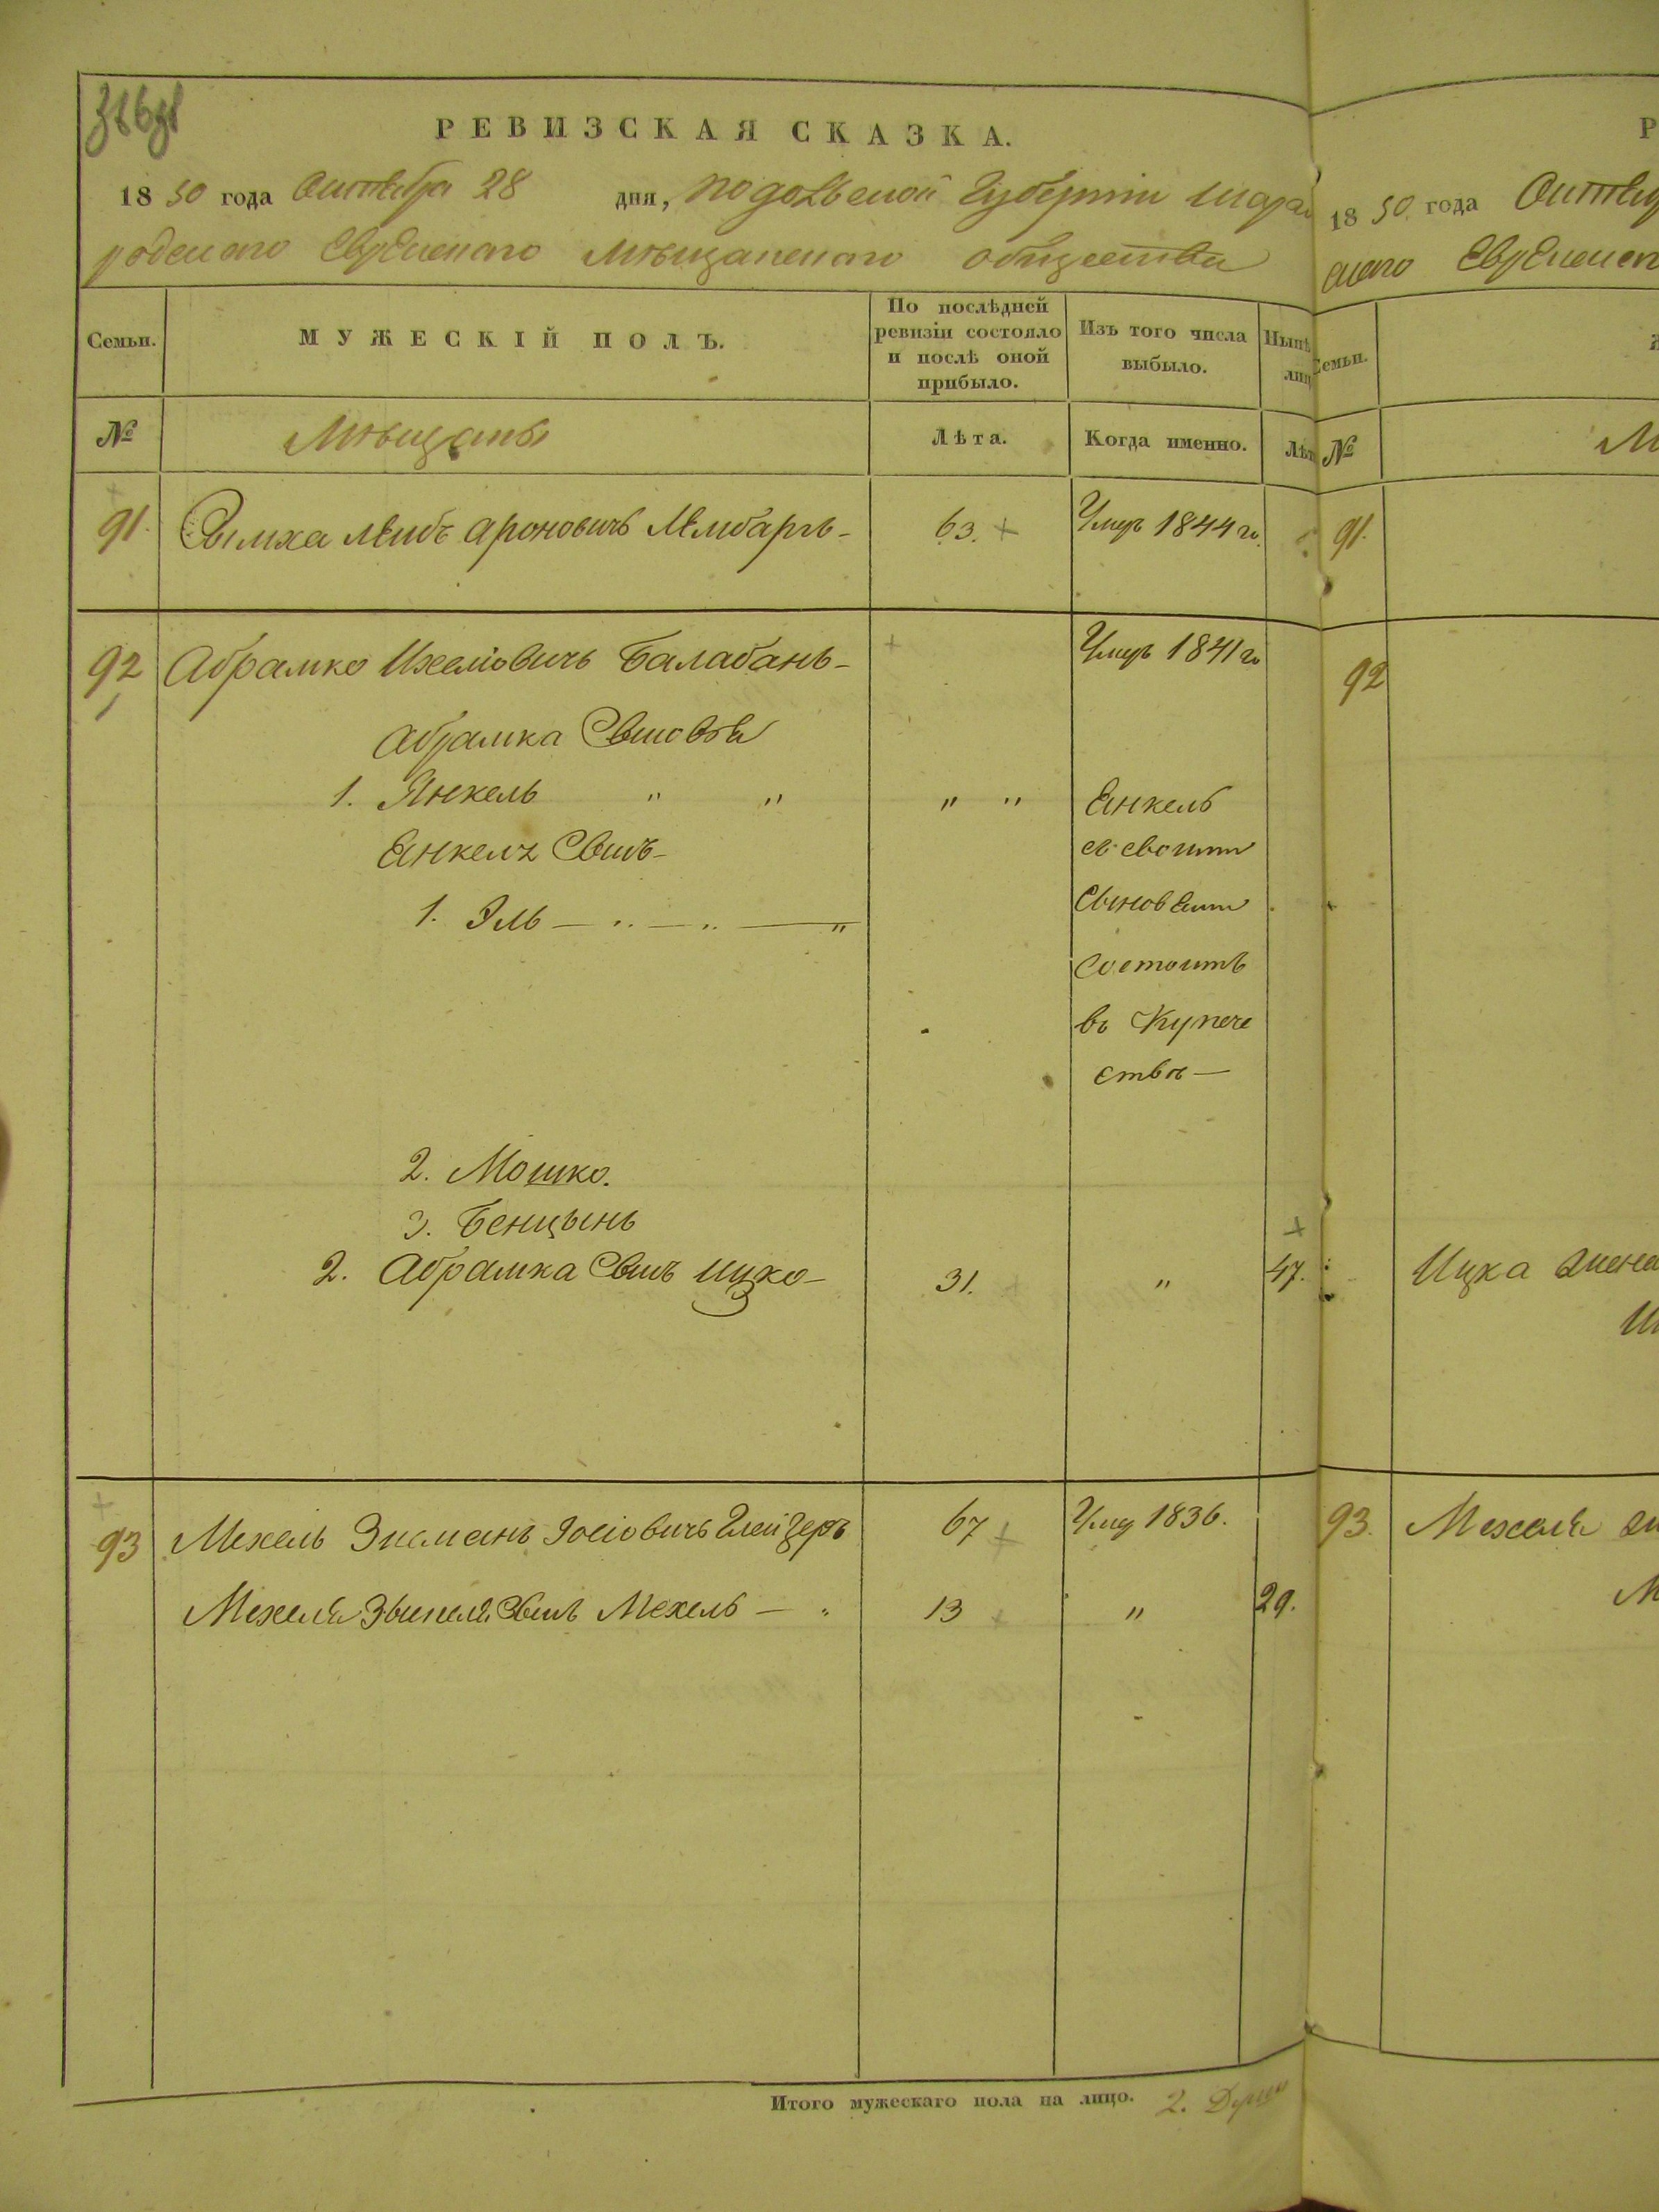 РЕВИЗСКАЯ СКАЗКА.
1850 года Октября 28 дня, Подольской Губерніи Шарго
родскаго Еврейскаго Мѣщанскаго общества
Семьи.
МУЖЕСКІЙ ПОЛЪ.
По послѣдней ревизіи состояло и послѣ оной прибыло.
Изъ того числа выбыло.
Нынѣ
лиц
№
Мѣщанъ
Лѣта.
Когда именно.
Лѣт
91. Сымха Лейбъ Ароновичъ Лембаргъ 63. Умеръ 1844 го
92 Абрамко Ихелiовичъ Балабанъ Умеръ 1841 го
Абрамка Сыновья
1. Янкель " " " " Енкель
Енкеля Сынъ съ своими
1. Эль " сыновьями
состоитъ
въ Купече
ствѣ
2. Мошко.
3. Бенцынъ
2. Абрамка Сынъ Ицко 31. " 47.
93 Мехель Зисманъ Іосіовичъ Глейзеръ 67 Умер 1836.
Мехеля Сынъ Мехель 13 " 29.
Итого мужескаго пола на лицо. 2. Души
Р
1850 года Октяб
скаго Еврейск
Семьи.
№
91.
92
Ицка жена
93. Мехеля